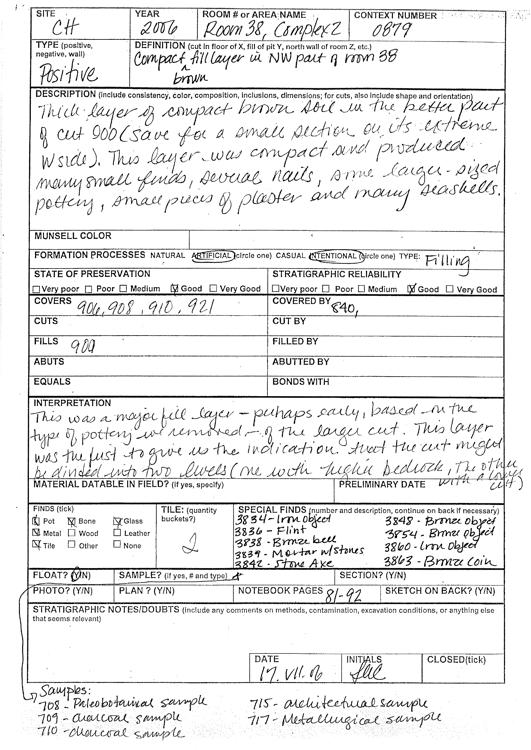 SITE YEAR ROOM # or AREA NAME CONTEXT NUMBER
CH 2006 Room 38, Complex 2 0879
TYPE (positive, negative, wall) DEFINITION (cut in floor of X, fill of pit Y, north wall of room Z, etc.)
Positive Compact brown fill layer in NW part of room 38
DESCRIPTION (include consistency, color, composition, inclusions, dimensions; for cuts, also include shape and orientation)
Thick layer of compact brown soil in the better part
of cut 900 (save for a small section on its extreme
W side). This layer was compact and produced
many small finds, several nails, some larger-sized
pottery, small pieces of plaster and many seashells.
MUNSELL COLOR
FORMATION PROCESSES NATURAL ARTIFICIAL (circle one) CASUAL INTENTIONAL (circle one) TYPE: Filling
STATE OF PRESERVATION STRATIGRAPHIC RELIABILITY
Very poor Poor Medium Good Very Good Very poor Poor Medium Good Very Good
COVERS 906, 908, 910, 921 COVERED BY 840,
CUTS CUT BY
FILLS 900 FILLED BY
ABUTS ABUTTED BY
EQUALS BONDS WITH
INTERPRETATION
This was a major fill layer - perhaps early, based on the
type of pottery we removed - of the larger cut. This layer
was the first to give us the indication that the cut might
be divided into two levels (one with higher bedrock, the other
with a lower cut)
MATERIAL DATABLE IN FIELD? (if yes, specify) PRELIMINARY DATE
FINDS (tick) TILE: (quantity buckets?) SPECIAL FINDS (number and description, continue on back if necessary)
Pot Bone Glass 2 3834 - Iron object 3848 - Bronze object
Metal Wood Leather 3836 - Flint 3854 - Bronze object
Tile Other None 3838 - Bronze bell 3860 - Iron Object
3839 - Mortar w/stones 3863 - Bronze Coin
3842 - Stone Axe
FLOAT? (Y/N) SAMPLE? (if yes, # and type) SECTION? (Y/N)
PHOTO? (Y/N) PLAN? (Y/N) NOTEBOOK PAGES 81-92 SKETCH ON BACK? (Y/N)
STRATIGRAPHIC NOTES/DOUBTS (include any comments on methods, contamination, excavation conditions, or anything else that seems relevant)
DATE INITIALS CLOSED(tick)
17.VII.06
Samples:
708 - Paleobotanical sample 715 - architectural sample
709 - charcoal sample 717 - Metallurgical sample
710 - charcoal sample